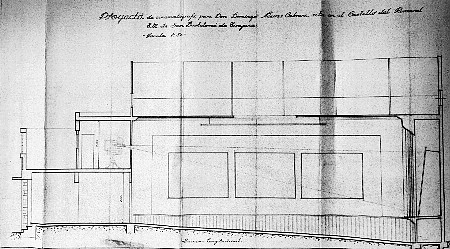 Proyecto de cinematógrafo para Don Domingo Cabrera sito en el Castillo del Romeral
T.M. de San Bartolomé de Tirajana
Escala 1:50
Sección longitudinal